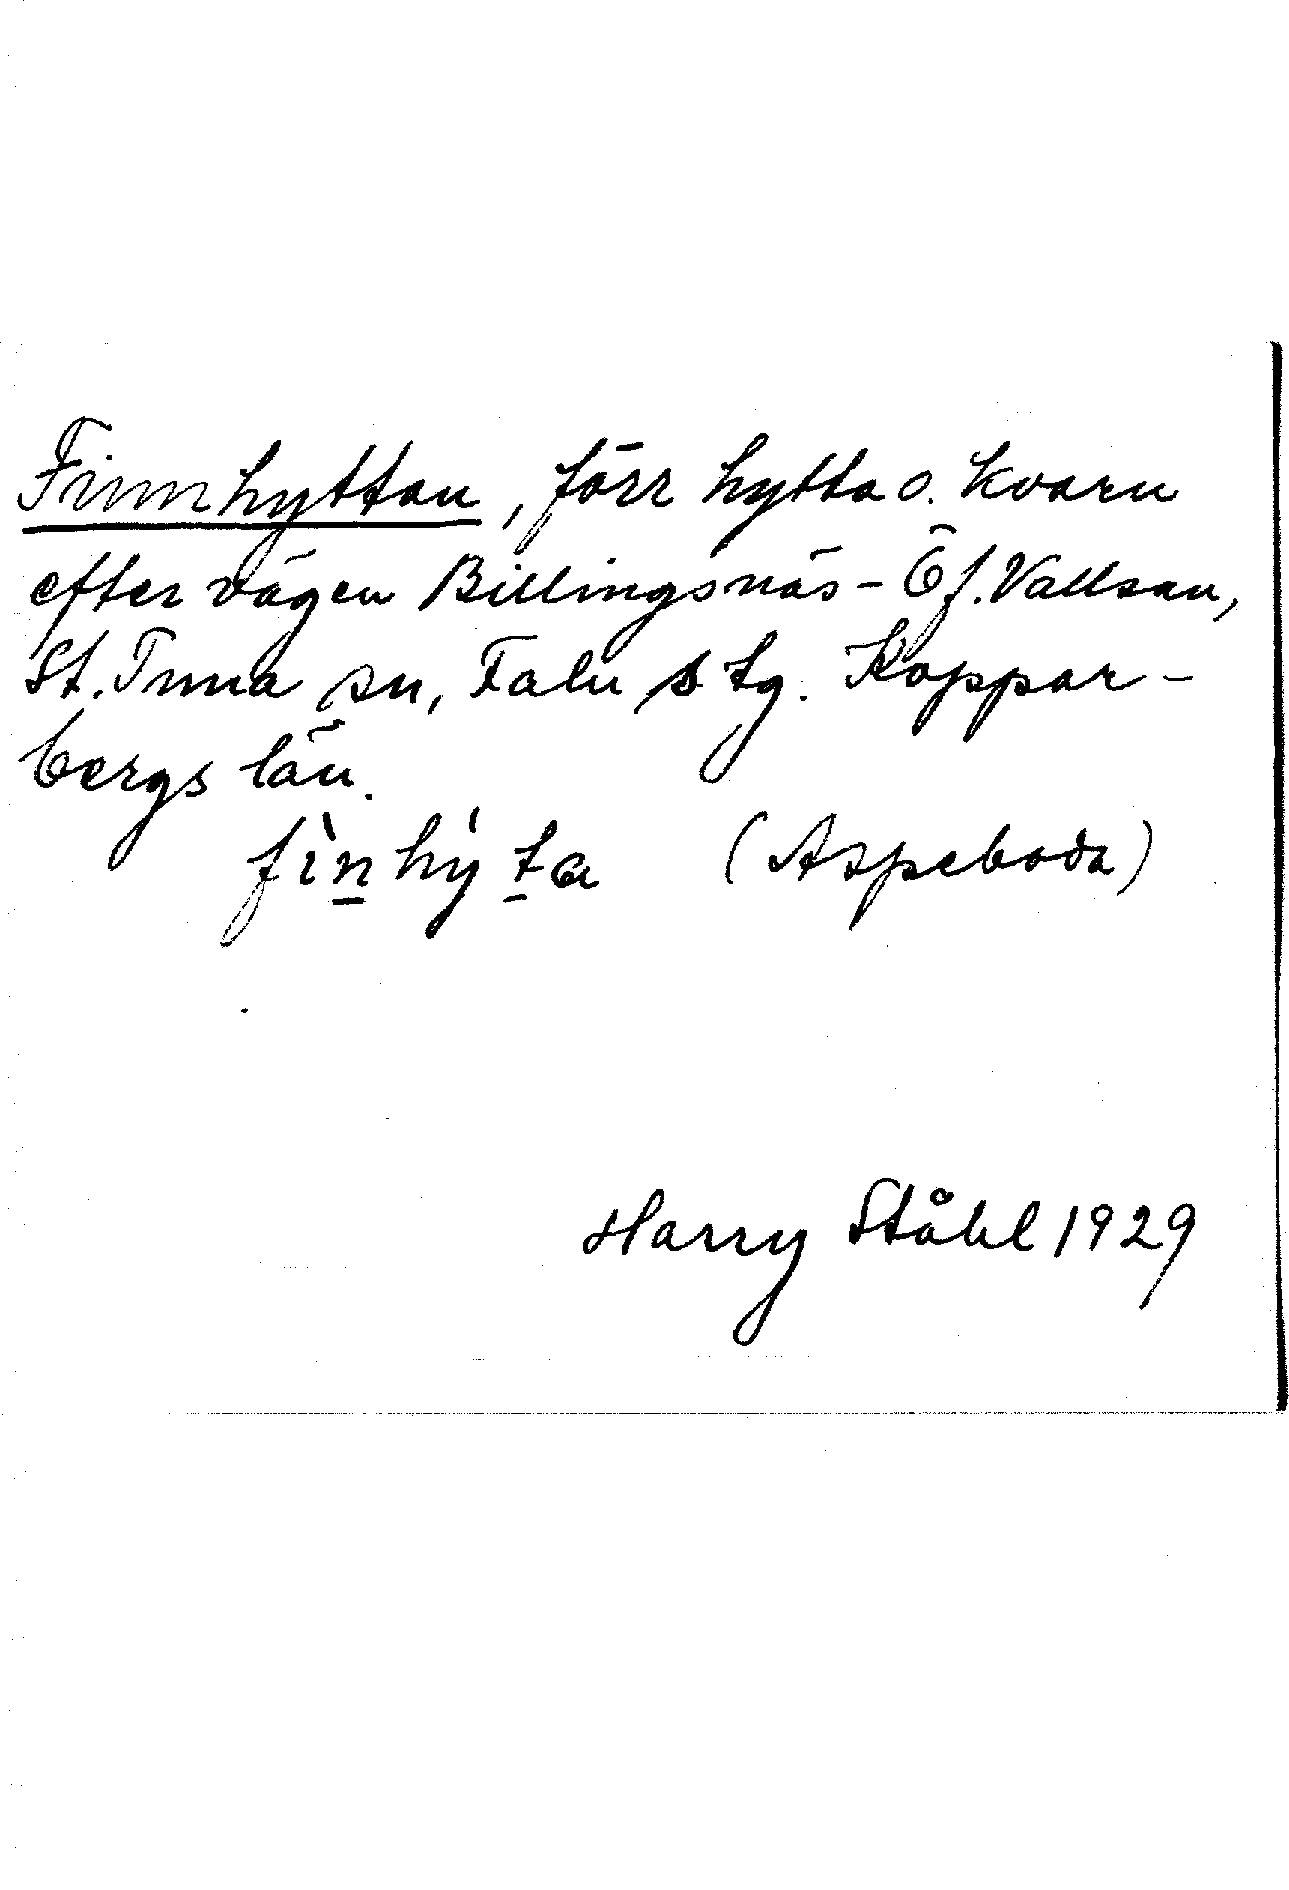 Finnhyttan, förr hytta o. kvarn
efter vägen Billingsnäs - Öf. Vallsan,
St. Tuna sn, Falu stg. Koppar-
bergs län.
fìn̲hý t̲a (Aspeboda)
Harry Ståhl 1929